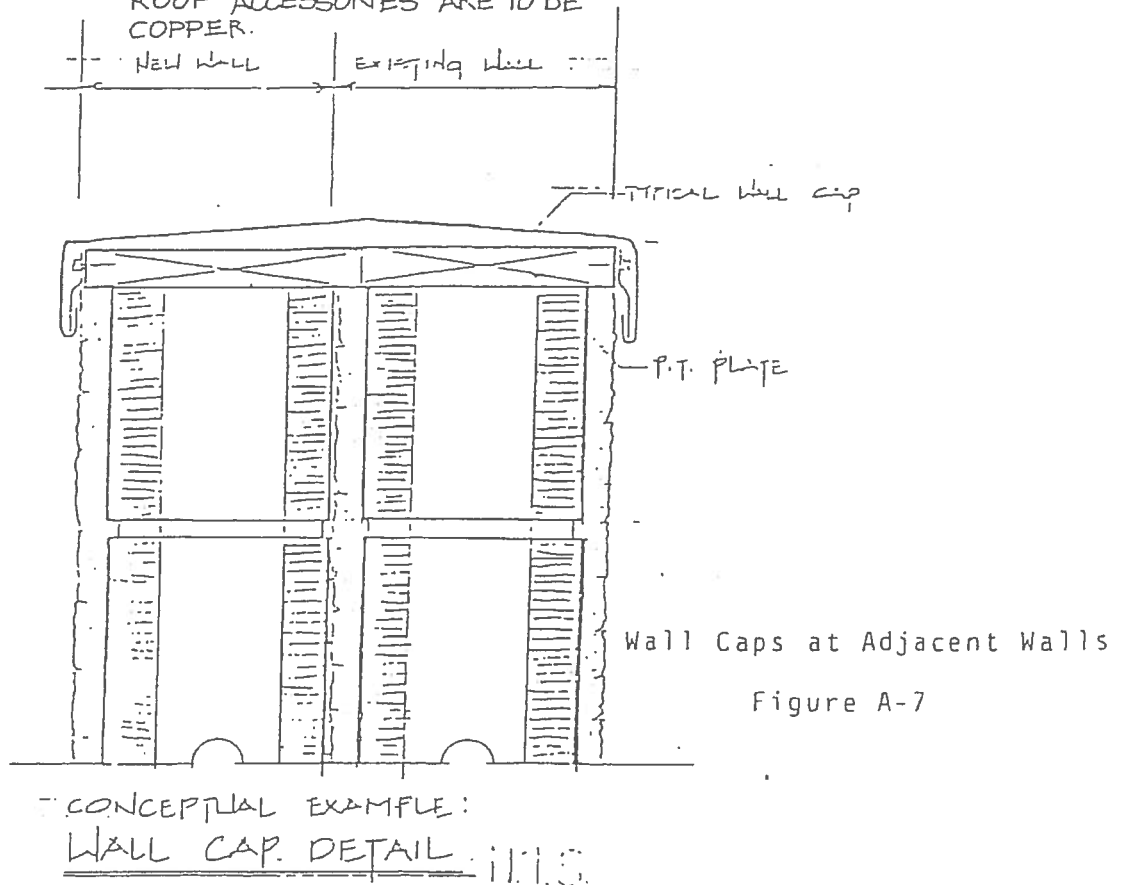 ROOF ACCESSORIES ARE TO BE
COPPER.
NEW WALL
EXISTING WALL
TYPICAL WALL CAP
P.T. PLATE
Wall Caps at Adjacent Walls
Figure A-7
CONCEPTUAL EXAMPLE:
WALL CAP. DETAIL